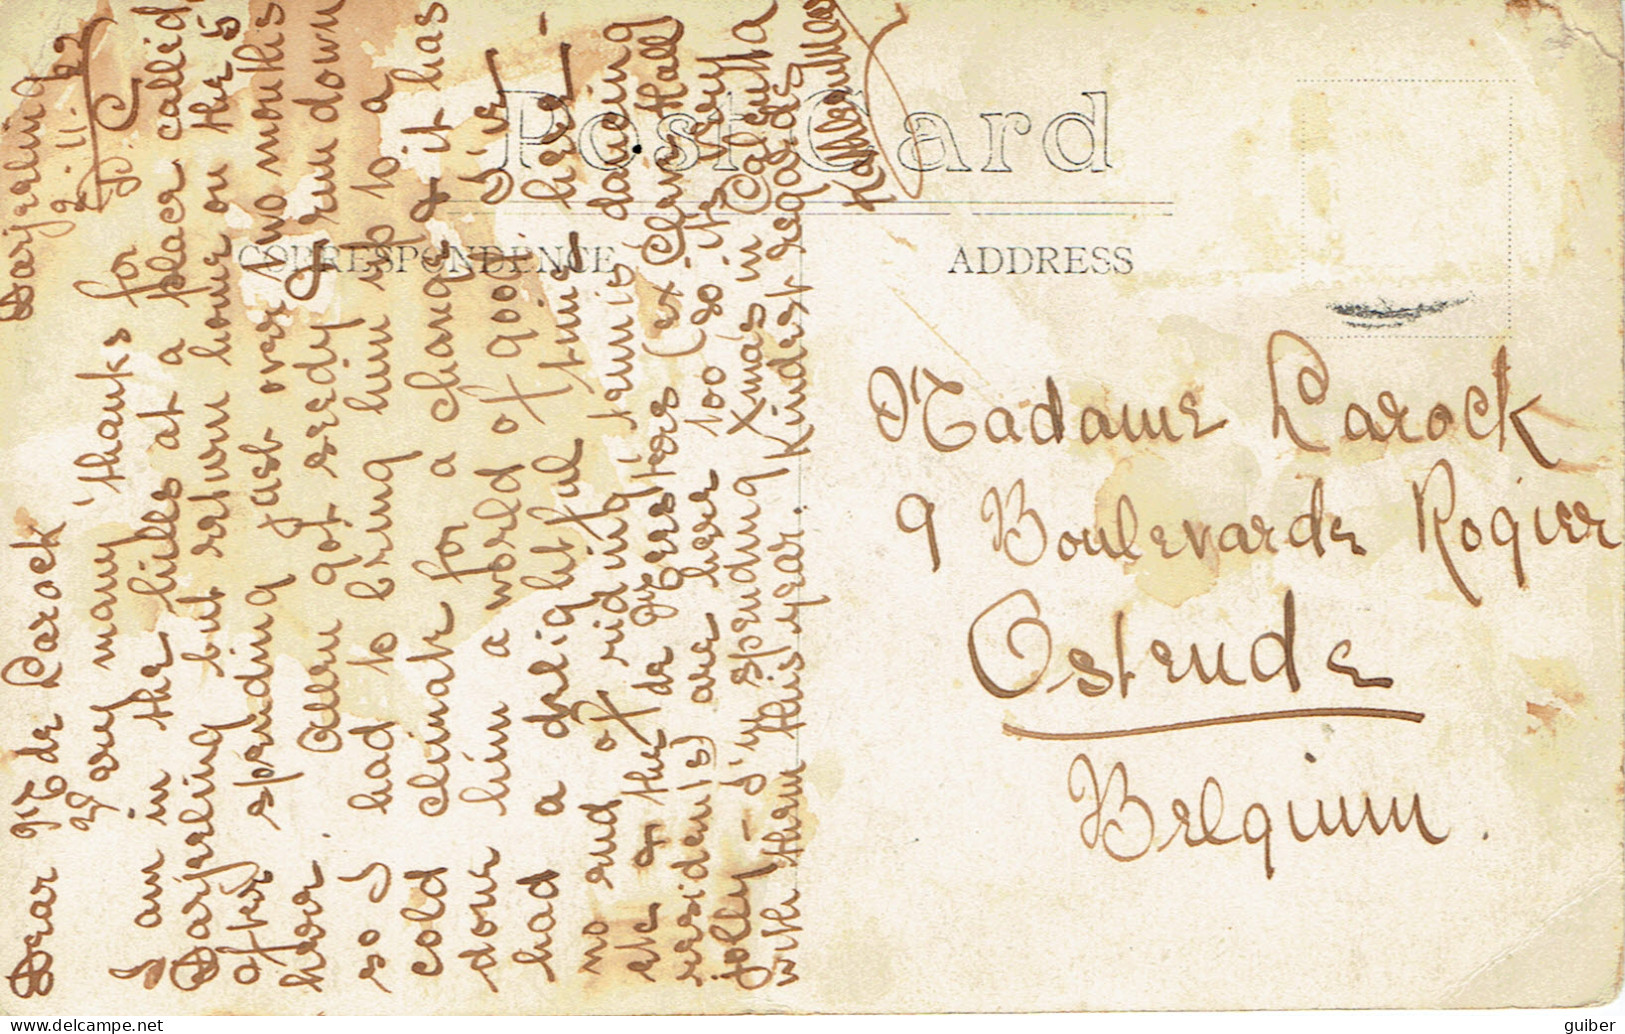 Post Card
CORRESPONDENCE
ADDRESS
Darjeeling
2.11.22
Dear Me Larock
Very many thanks for
I am in the hills at a place called
Darjeeling but return home on the 5
after spending just over two months
here. Allen got seedy & run down
so I had to bring him up to a
cold climate for a change & it has
done him a world of good. I've
had a delightful time here -
no end of riding tennis dancing
etc & the de Meesters (ex Clive Hall
residents) are here too so it's very
jolly - I'm spending Xmas in Calcutta
with them this year. Kindest regards
Madame Larock
9 Boulevarde Rogier
Ostende
Belgium.
guiber
delcampe.net